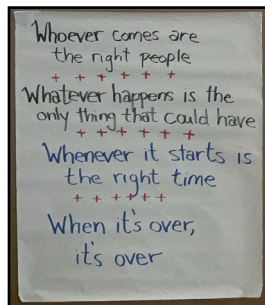 Whoever comes are
the right people
+ + + + + +
Whatever happens is the
only thing that could have
+ + + + + +
Whenever it starts is
the right time
+ + + + + +
When it's over,
it's over